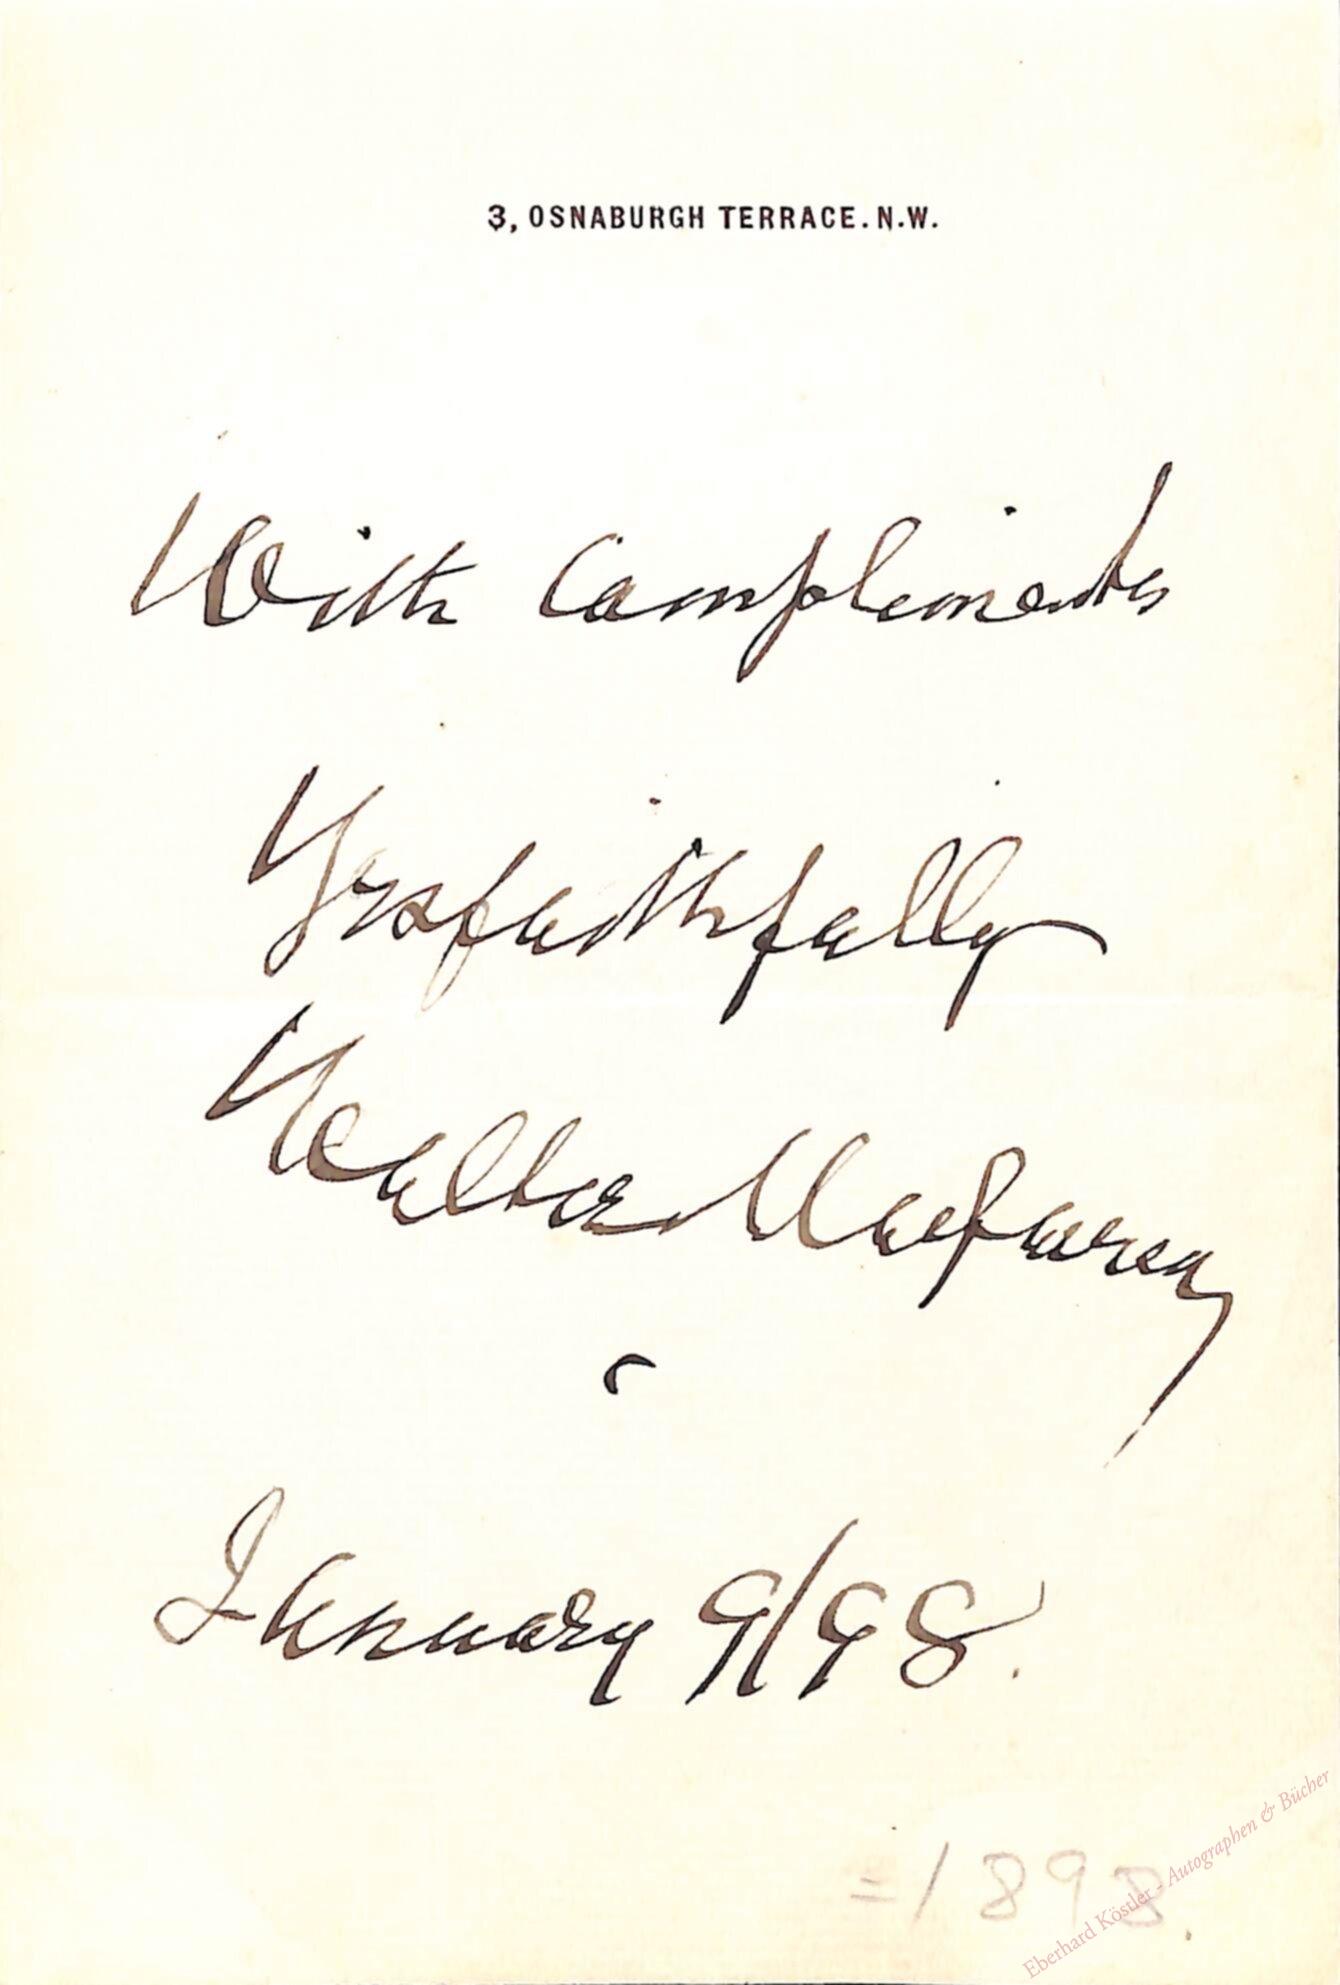 3, OSNABURGH TERRACE. N.W.
With Compliments
Yrs faithfully
Walter Macfarren
January 9/98.
=1898.
Eberhard Köstler - Autographen & Bücher